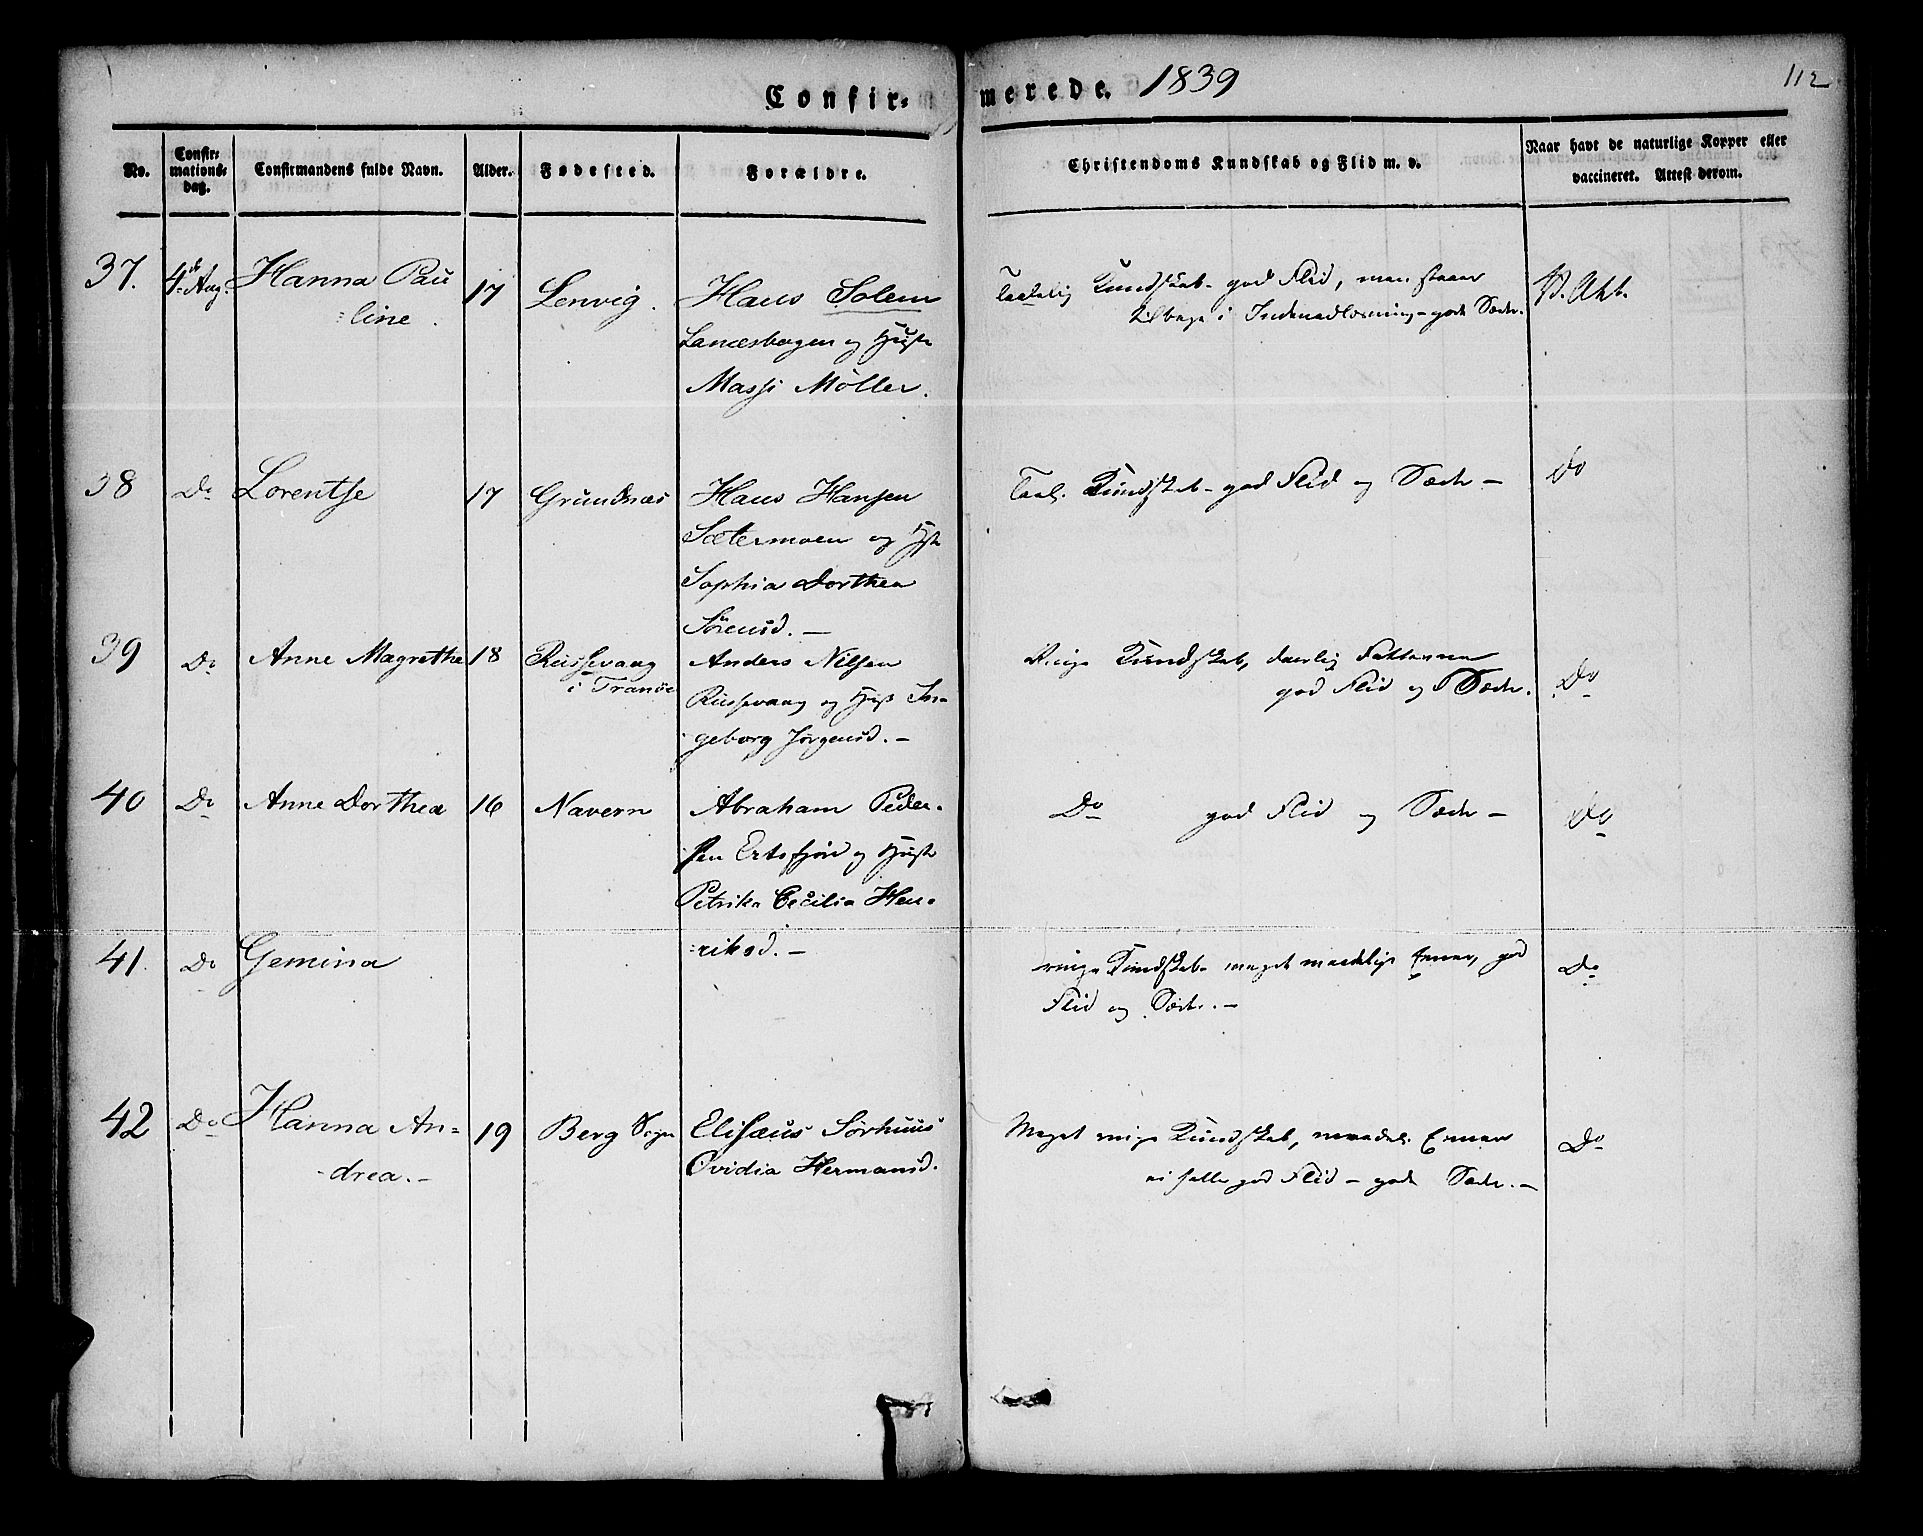 Confir- merede. 1839
112
No.
Confir-
mations-
dag.
Confirmandens fulde Navn.
Alder.
Fødested.
Forældre.
Christendoms Kundskab og Flid m. v.
Naar havt de naturlige Kopper eller
vaccineret. Attest derom.
37. 4de Aug. Hanna Pau
=line.
17
Lenvig.
Hans Solem
og Hust
Massi Møller.
Taalelig Kundskab - god Flid, men staaer
tilbage i Indenadlæsning - gode Sæder.
V. Att.
38 Do Lorentse 17 Grundnæs
Hans Hansen
Sætermoen og Hst
Sophia Dorthea
Sörensd. -
Taal. Kundskab - god Flid og Sæder -
Do
39 Do Anne Magrethe 18
Russevaag
i Tranöe
Anders Nilsen
Russevaag og Hust In-
geborg Jörgensd. -
Ringe Kundskab, daarlig Fatteevne
god Flid og Sæder.
Do
40 Do Anne Dorthea 16 Navern
Abraham Peder-
sen Ertsfjord og Hust
Petrika Cecilia Hen-
=riksd. -
Do god Flid og Sæder -
Do
41. Do Gemina
ringe Kundskab - meget maadelige Evner, god
Flid og Sæder. -
Do
42 Do Hanna An=
-drea. -
19
Berg Sogn
Elisæus Sörhuus
Ovidia Hermansd.
Meget ringe Kundskab, maadel. Evner
god Flid - gode Sæder. -
Do